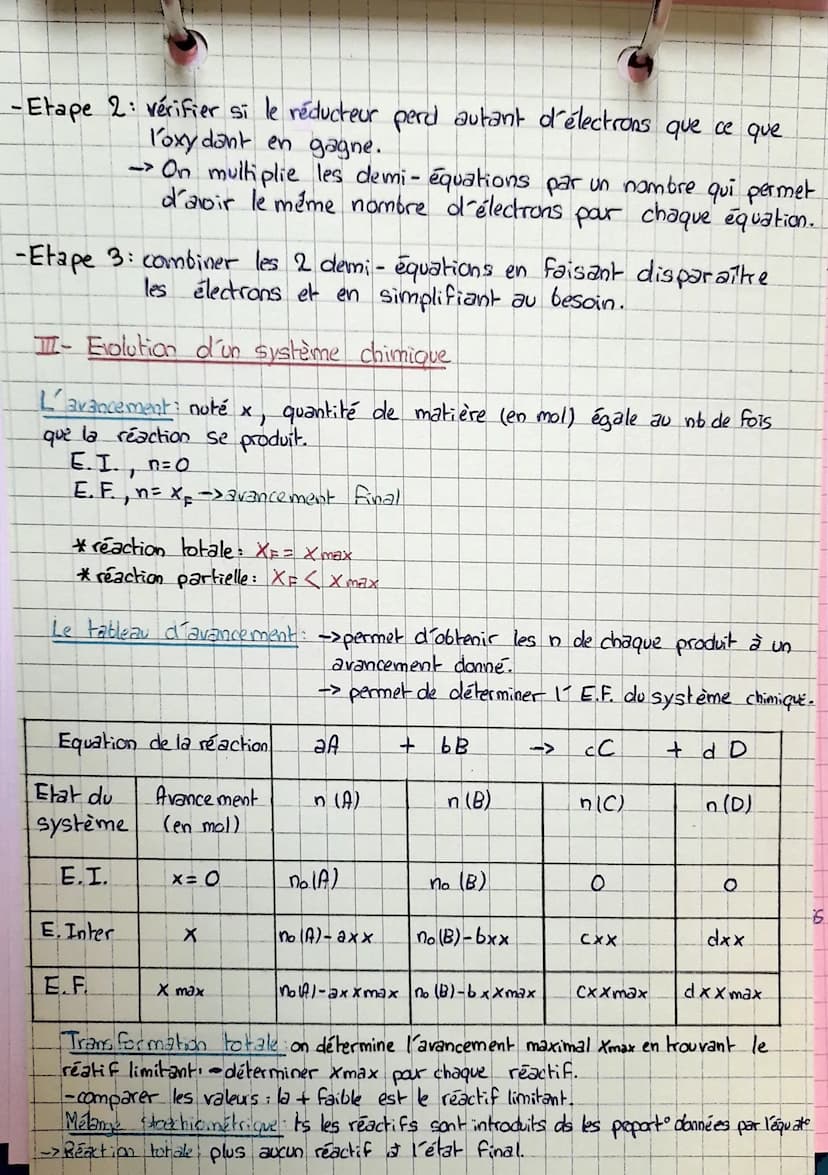 -Etape 2: vérifier si le réducteur perd autant d'électrons que ce que
l'oxydant en gagne.
-> On multiplie les demi-équations par un nombre qui permet
d'avoir le même nombre d'électrons pour chaque équation.
-Etape 3: combiner les 2 demi-équations en faisant disparaître
les électrons et en simplifiant au besoin.
III- Evolution d'un système chimique
L'avancement: noté x, quantité de matière (en mol) égale au nb de fois
que la réaction se produit.
E.I., n=0
E.F., n= xF -> avancement final
* réaction totale: XF = Xmax
* réaction partielle: XF < Xmax
Le tableau d'avancement: -> permet d'obtenir les n de chaque produit à un
avancement donné.
-> permet de déterminer l'E.F. du système chimique.
Equation de la réaction aA + bB -> cC + dD
Etat du système Avancement (en mol) n(A) n(B) n(C) n(D)
E.I. x=0 no(A) no(B) 0 0
E. Inter x no(A)-axx no(B)-bxx cxx dxx
E.F. x max no(A)-axxmax no(B)-bxxmax cxxmax dxxmax
6
Transformation totale: on détermine l'avancement maximal xmax en trouvant le
réatif limitant. - déterminer xmax pour chaque réactif.
-comparer les valeurs: la + faible est le réactif limitant.
Mélange stoechiométrique: ts les réactifs sont introduits ds les données par l'équat°
-> Réaction totale: plus aucun réactif à l'état final.